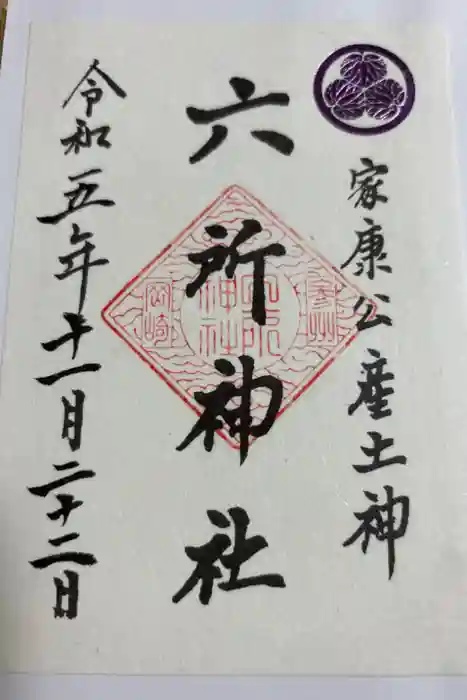 家康公産土神
六所神社
参州
六所
神社
岡崎
令和五年十一月二十二日